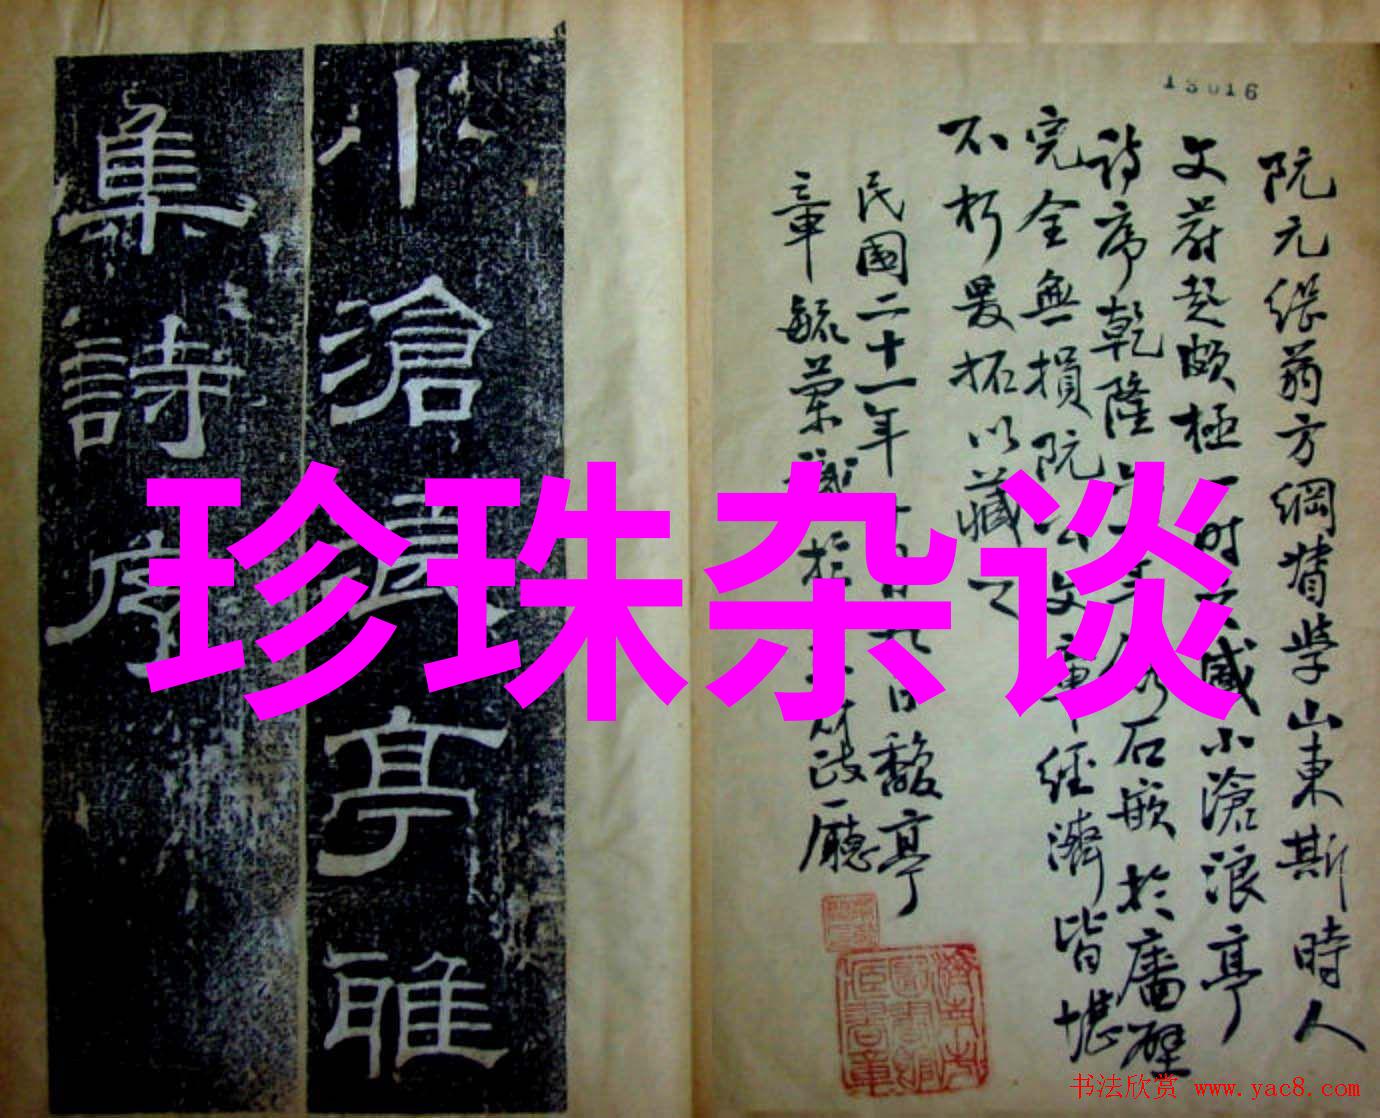 小滄浪亭雅
集詩序
13016
阮元繼翁方綱督學山東斯時人
文蔚起頗極一時之盛小滄浪亭
詩序乾隆 石嵌於廧壁
完全無損阮公文章經濟皆堪
不朽爰拓以藏之
民國二十一年十 月 日馥亭
章毓蘭識於 財政廳
珍珠杂谈
书法欣赏 www.yac8.com